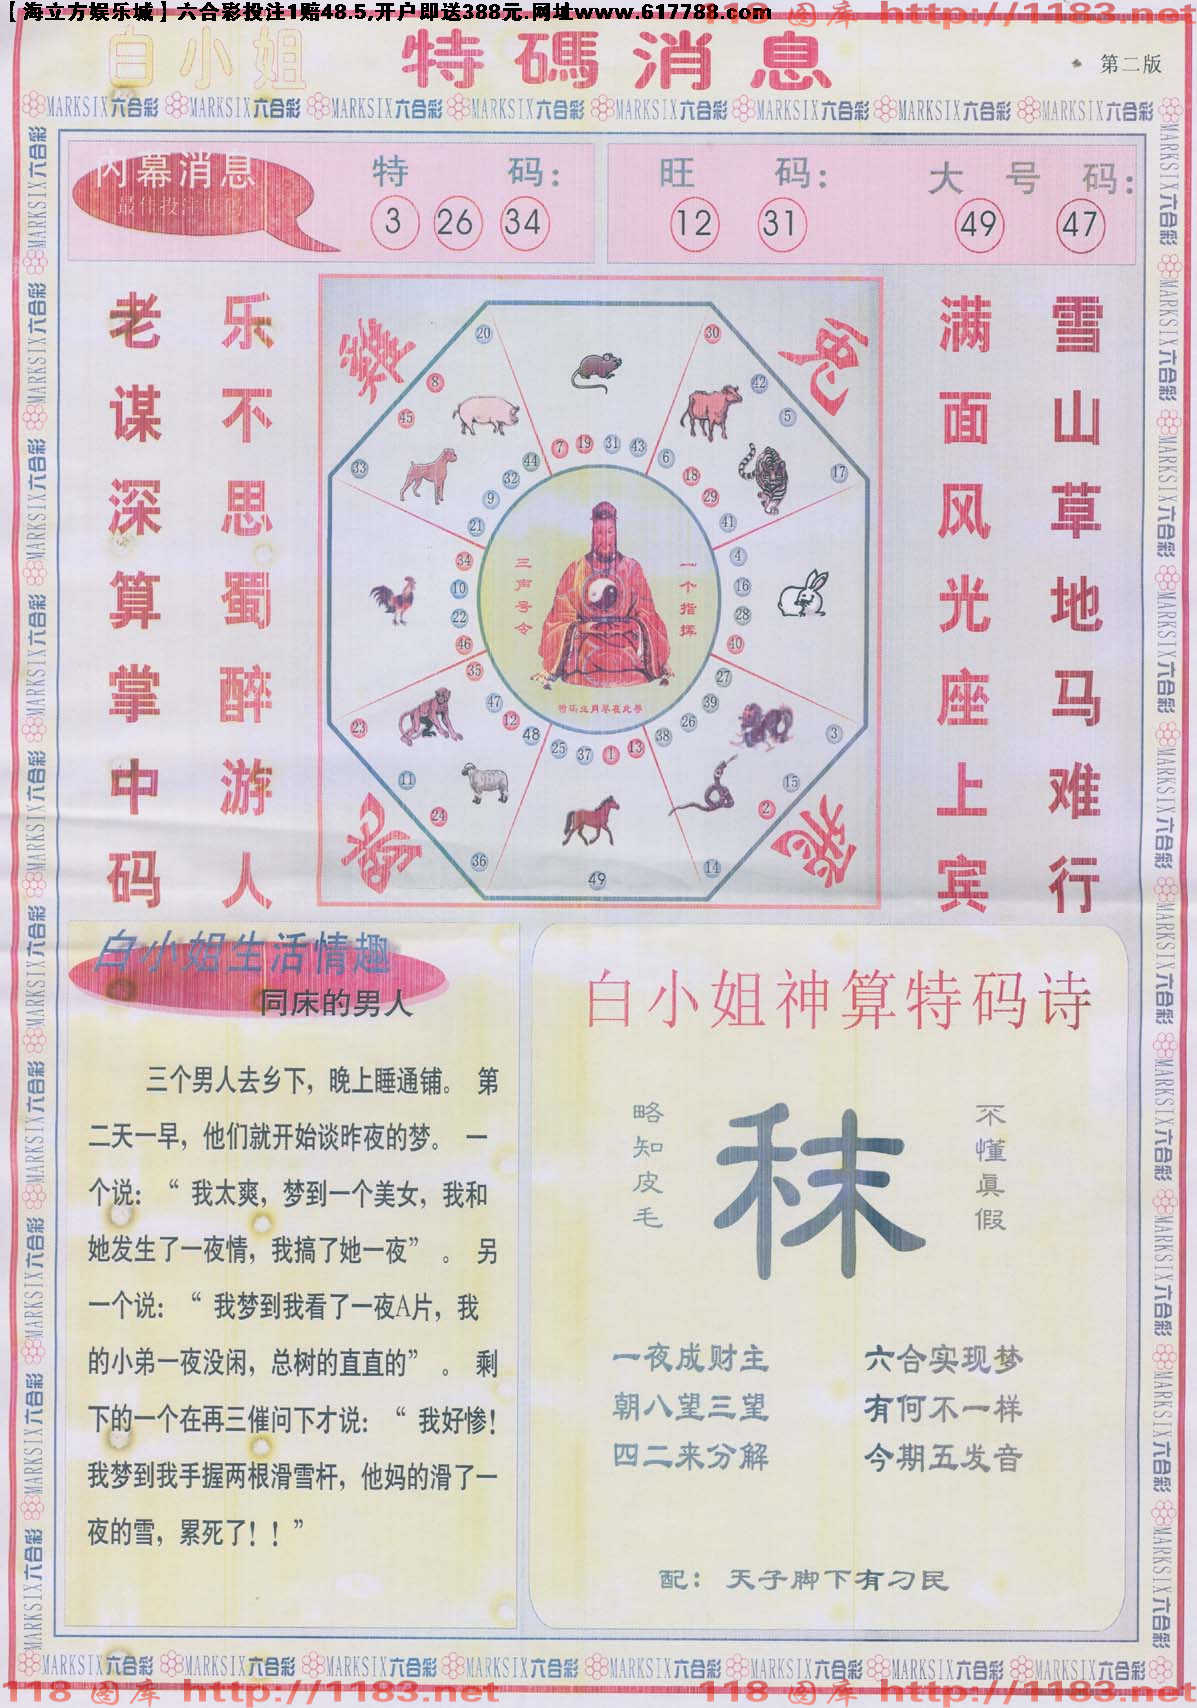 【海立方娱乐城】六合彩投注1赔48.5,开户即送388元.网址www.617788.com
118 图库 http://1183.net
白小姐 特碼消息
第二版
MARKSIX六合彩 MARKSIX六合彩 MARKSIX六合彩 MARKSIX六合彩 MARKSIX六合彩 MARKSIX六合彩 MARKSIX六合彩 MARKSIX六合彩
内幕消息
特 码:
3 26 34
旺 码:
12 31
大 号 码:
49 47
老谋深算掌中码
乐不思蜀醉游人
满面风光座上宾
雪山草地马难行
20 30
8 42
45 5
33 17
7 19 31 43
44 6
32 18
9 29
21 41
34 4
10 16
22 28
46 40
35 27
47 39
12 26
48 38
25 37 1 13
23 3
11 15
24 2
36 14
49
三声号令
一个指挥
兔
龙
白小姐生活情趣
同床的男人
三个男人去乡下，晚上睡通铺。 第
二天一早，他们就开始谈昨夜的梦。 一
个说：“ 我太爽，梦到一个美女，我和
她发生了一夜情，我搞了她一夜” 。 另
一个说：“ 我梦到我看了一夜A片，我
的小弟一夜没闲，总树的直直的” 。 剩
下的一个在再三催问下才说：“ 我好惨！
我梦到我手握两根滑雪杆，他妈的滑了一
夜的雪，累死了！！”
白小姐神算特码诗
略知皮毛
秣
不懂真假
一夜成财主 六合实现梦
朝八望三望 有何不一样
四二来分解 今期五发音
配： 天子脚下有刁民
MARKSIX六合彩 MARKSIX六合彩 MARKSIX六合彩 MARKSIX六合彩 MARKSIX六合彩 MARKSIX六合彩 MARKSIX六合彩 MARKSIX六合彩
118 图库 http://1183.net 118 图库 http://1183.net